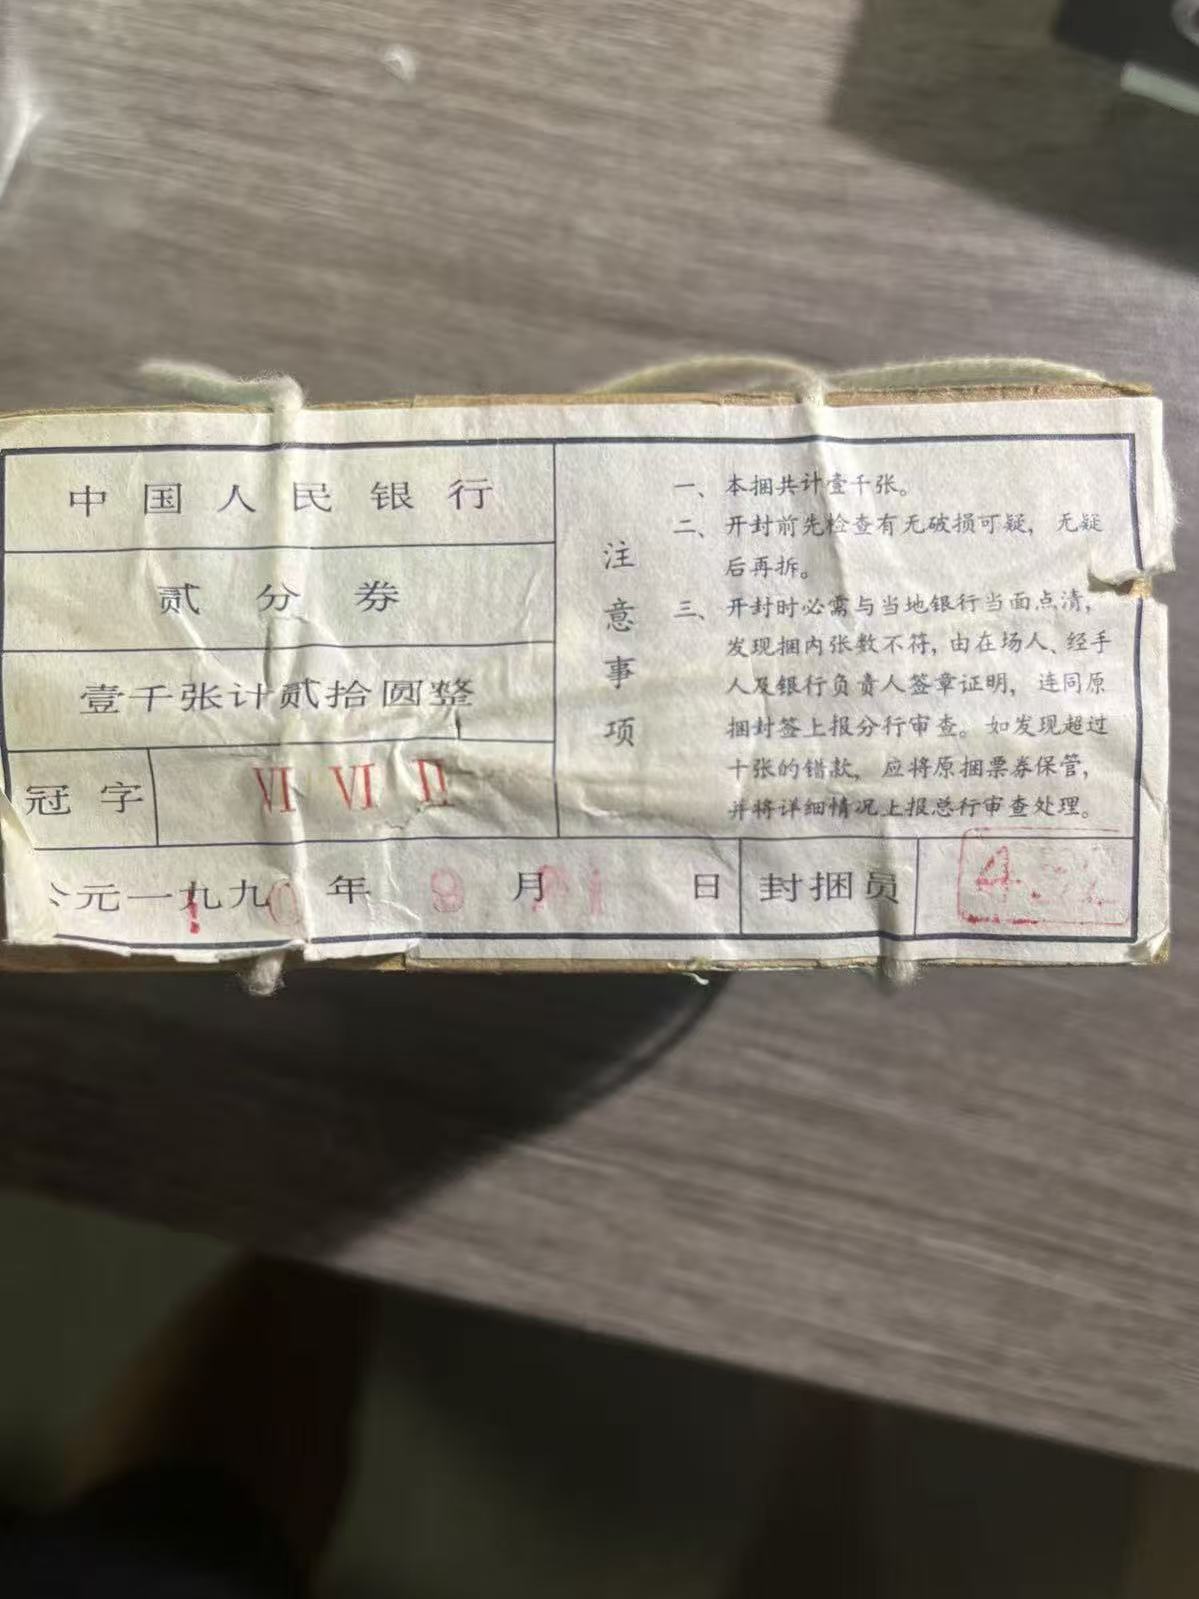 中国人民银行
贰分券
壹千张计贰拾圆整
冠字 Ⅵ Ⅵ Ⅱ
公元一九九0年 9月21日
注意事项
一、本捆共计壹千张。
二、开封前先检查有无破损可疑，无疑
后再拆。
三、开封时必需与当地银行当面点清，
发现捆内张数不符，由在场人、经手
人及银行负责人签章证明，连同原
捆封签上报分行审查。如发现超过
十张的错款，应将原捆票券保管，
并将详细情况上报总行审查处理。
封捆员